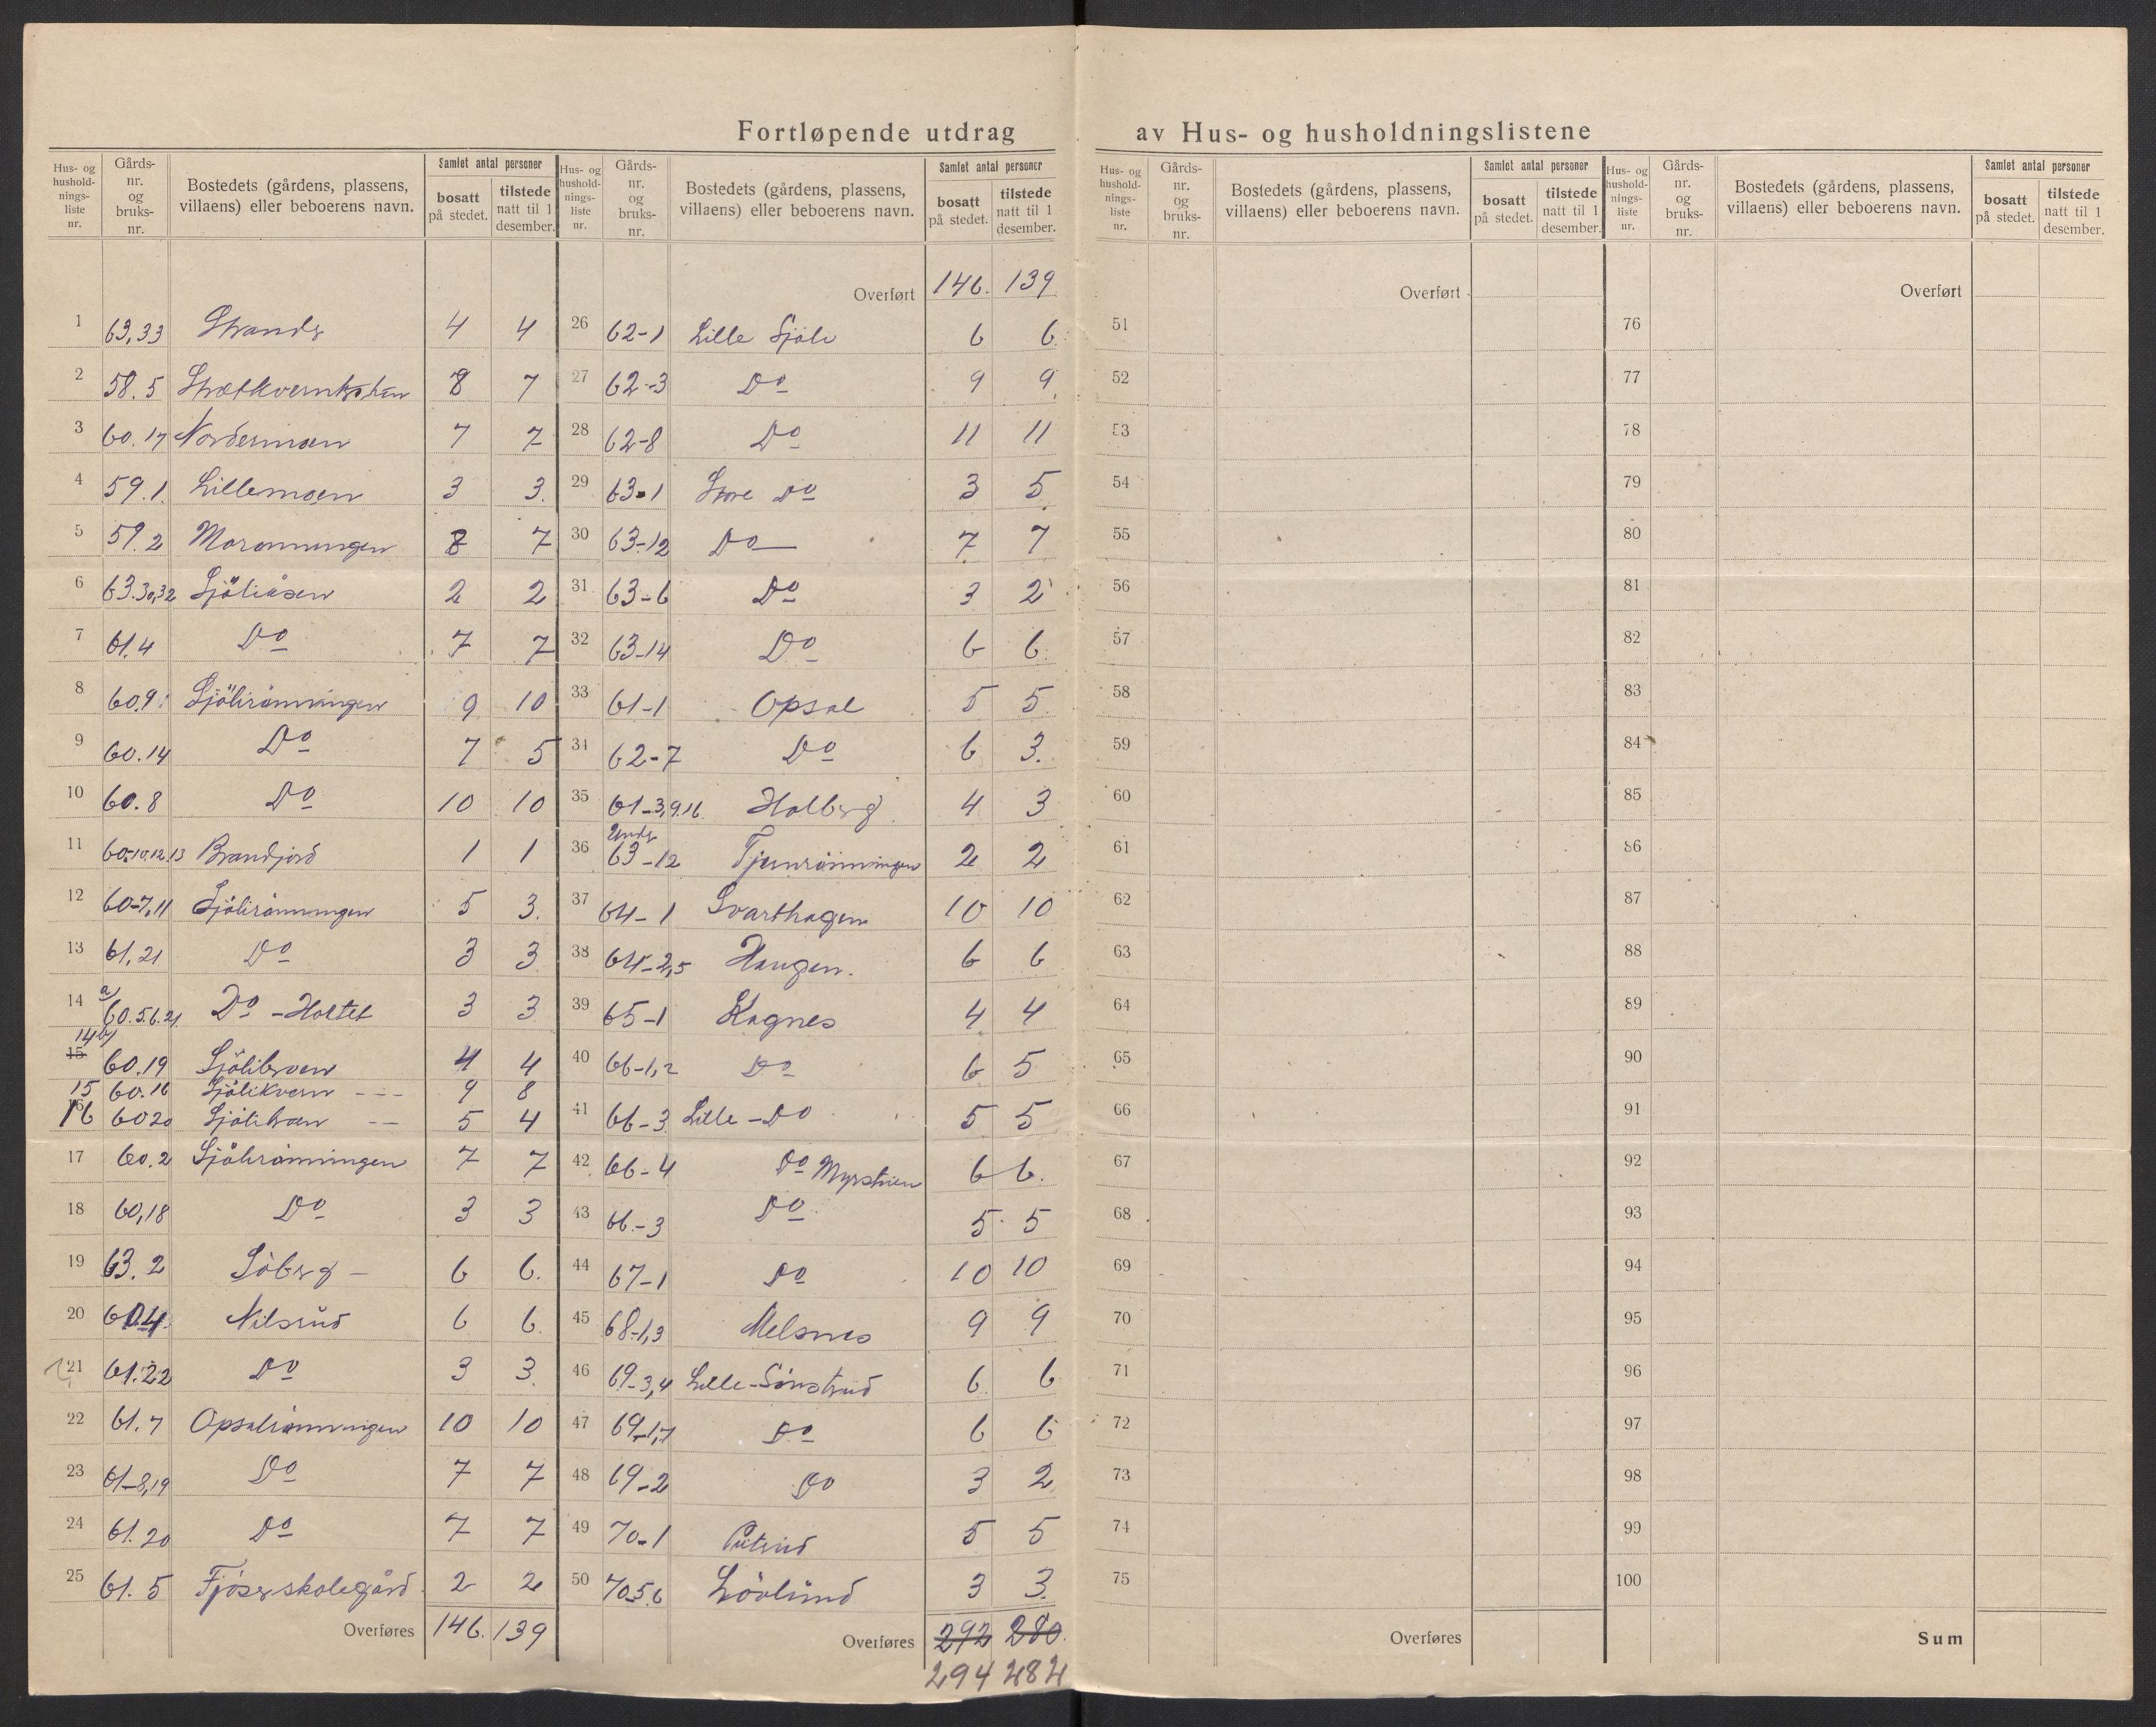 Fortløpende utdrag av Hus- og husholdningslistene
Hus- og husholdningsliste nr. Gårds-nr. og bruks-nr. Bostedets (gårdens, plassens, villaens) eller beboerens navn. Samlet antal personer bosatt på stedet. tilstede natt til 1 desember.
1 63,33 Strands 4 4
2 58.5 8 7
3 60.17 Nordermoen 7 7
4 59.1. Lillemoen 3 3.
5 59.2 Moronningen 8 7
6 63.30,32 Sjöliåsen 2 2
7 61.4 Do 7 7
8 60.9. Sjölirönningen 9 10
9 60.14 Do 7 5
10 60.8 Do 10 10
11 60-10.12.13 Brandjord 1 1
12 60-7,11 Sjölirönningen 5 3.
13 61,21 Do 3 3
14 a/ 60.5.6.21 Do - Holtet 3 3
15 14 b/ 60.19 Sjölibroen 4 4
15 60.16 Sjölikvern --- 9 8
16 60 20 -- 5 4
17 60.2 Sjölirönningen 7 7
18 60,18 Do 3 3
19 63.2 Söberg - 6 6.
20 60.4. Nilsrud 6 6
21 61.22 Do 3 3
22 61.7 Opsalrönningen 10 10
23 61-8,19 Do 7 7
24 61.20 Do 7 7
25 61.5 Fjöser skolegård 2 2
Overføres 146. 139
Hus- og husholdningsliste nr. Gårds-nr. og bruks-nr. Bostedets (gårdens, plassens, villaens) eller beboerens navn. Samlet antal personer bosatt på stedet. tilstede natt til 1 desember.
Overført 146. 139
26 62-1 Lille Sjöli 6 6
27 62-3 Do 9 9
28 62-8 Do 11 11
29 63-1 Store Do 3 5
30 63-12 Do 7 7
31 63-6 Do 3 2
32 63-14 Do 6 6
33 61-1 Opsal 5 5
34 62-7 Do 6 3.
35 61-3,9.16. Holberg 4 3
36 Under 63-12 Tjernrönningen 2 2
37 64-1 Svarthagen 10 10
38 64-2,5 Haugen. 6 6
39 65-1 Kagnes 4 4
40 66-1,2 Do 6 5
41 66-3 Lille - Do 5 5
42 66-4 Do Myrstuen 6 6.
43 66.-3 Do 5 5
44 67-1 Do 10 10
45 68-1,3 Melsnes 9 9
46 69-3,4 Lille-Sönstrud 6 6
47 69-1,7 Do 6 6
48 69-2 Do 3 2
49 70-1 Putrud 5 5
50 70.5.6 Lövlund 3 3.
Overføres 292 280.
294 282
Hus- og husholdningsliste nr. Gårds-nr. og bruks-nr. Bostedets (gårdens, plassens, villaens) eller beboerens navn. Samlet antal personer bosatt på stedet. tilstede natt til 1 desember.
Overført
51
52
53
54
55
56
57
58
59
60
61
62
63
64
65
66
67
68
69
70
71
72
73
74
75
Overføres
Hus- og husholdningsliste nr. Gårds-nr. og bruks-nr. Bostedets (gårdens, plassens, villaens) eller beboerens navn. Samlet antal personer bosatt på stedet. tilstede natt til 1 desember.
Overført
76
77
78
79
80
81
82
83
84
85
86
87
88
89
90
91
92
93
94
95
96
97
98
99
100
Sum